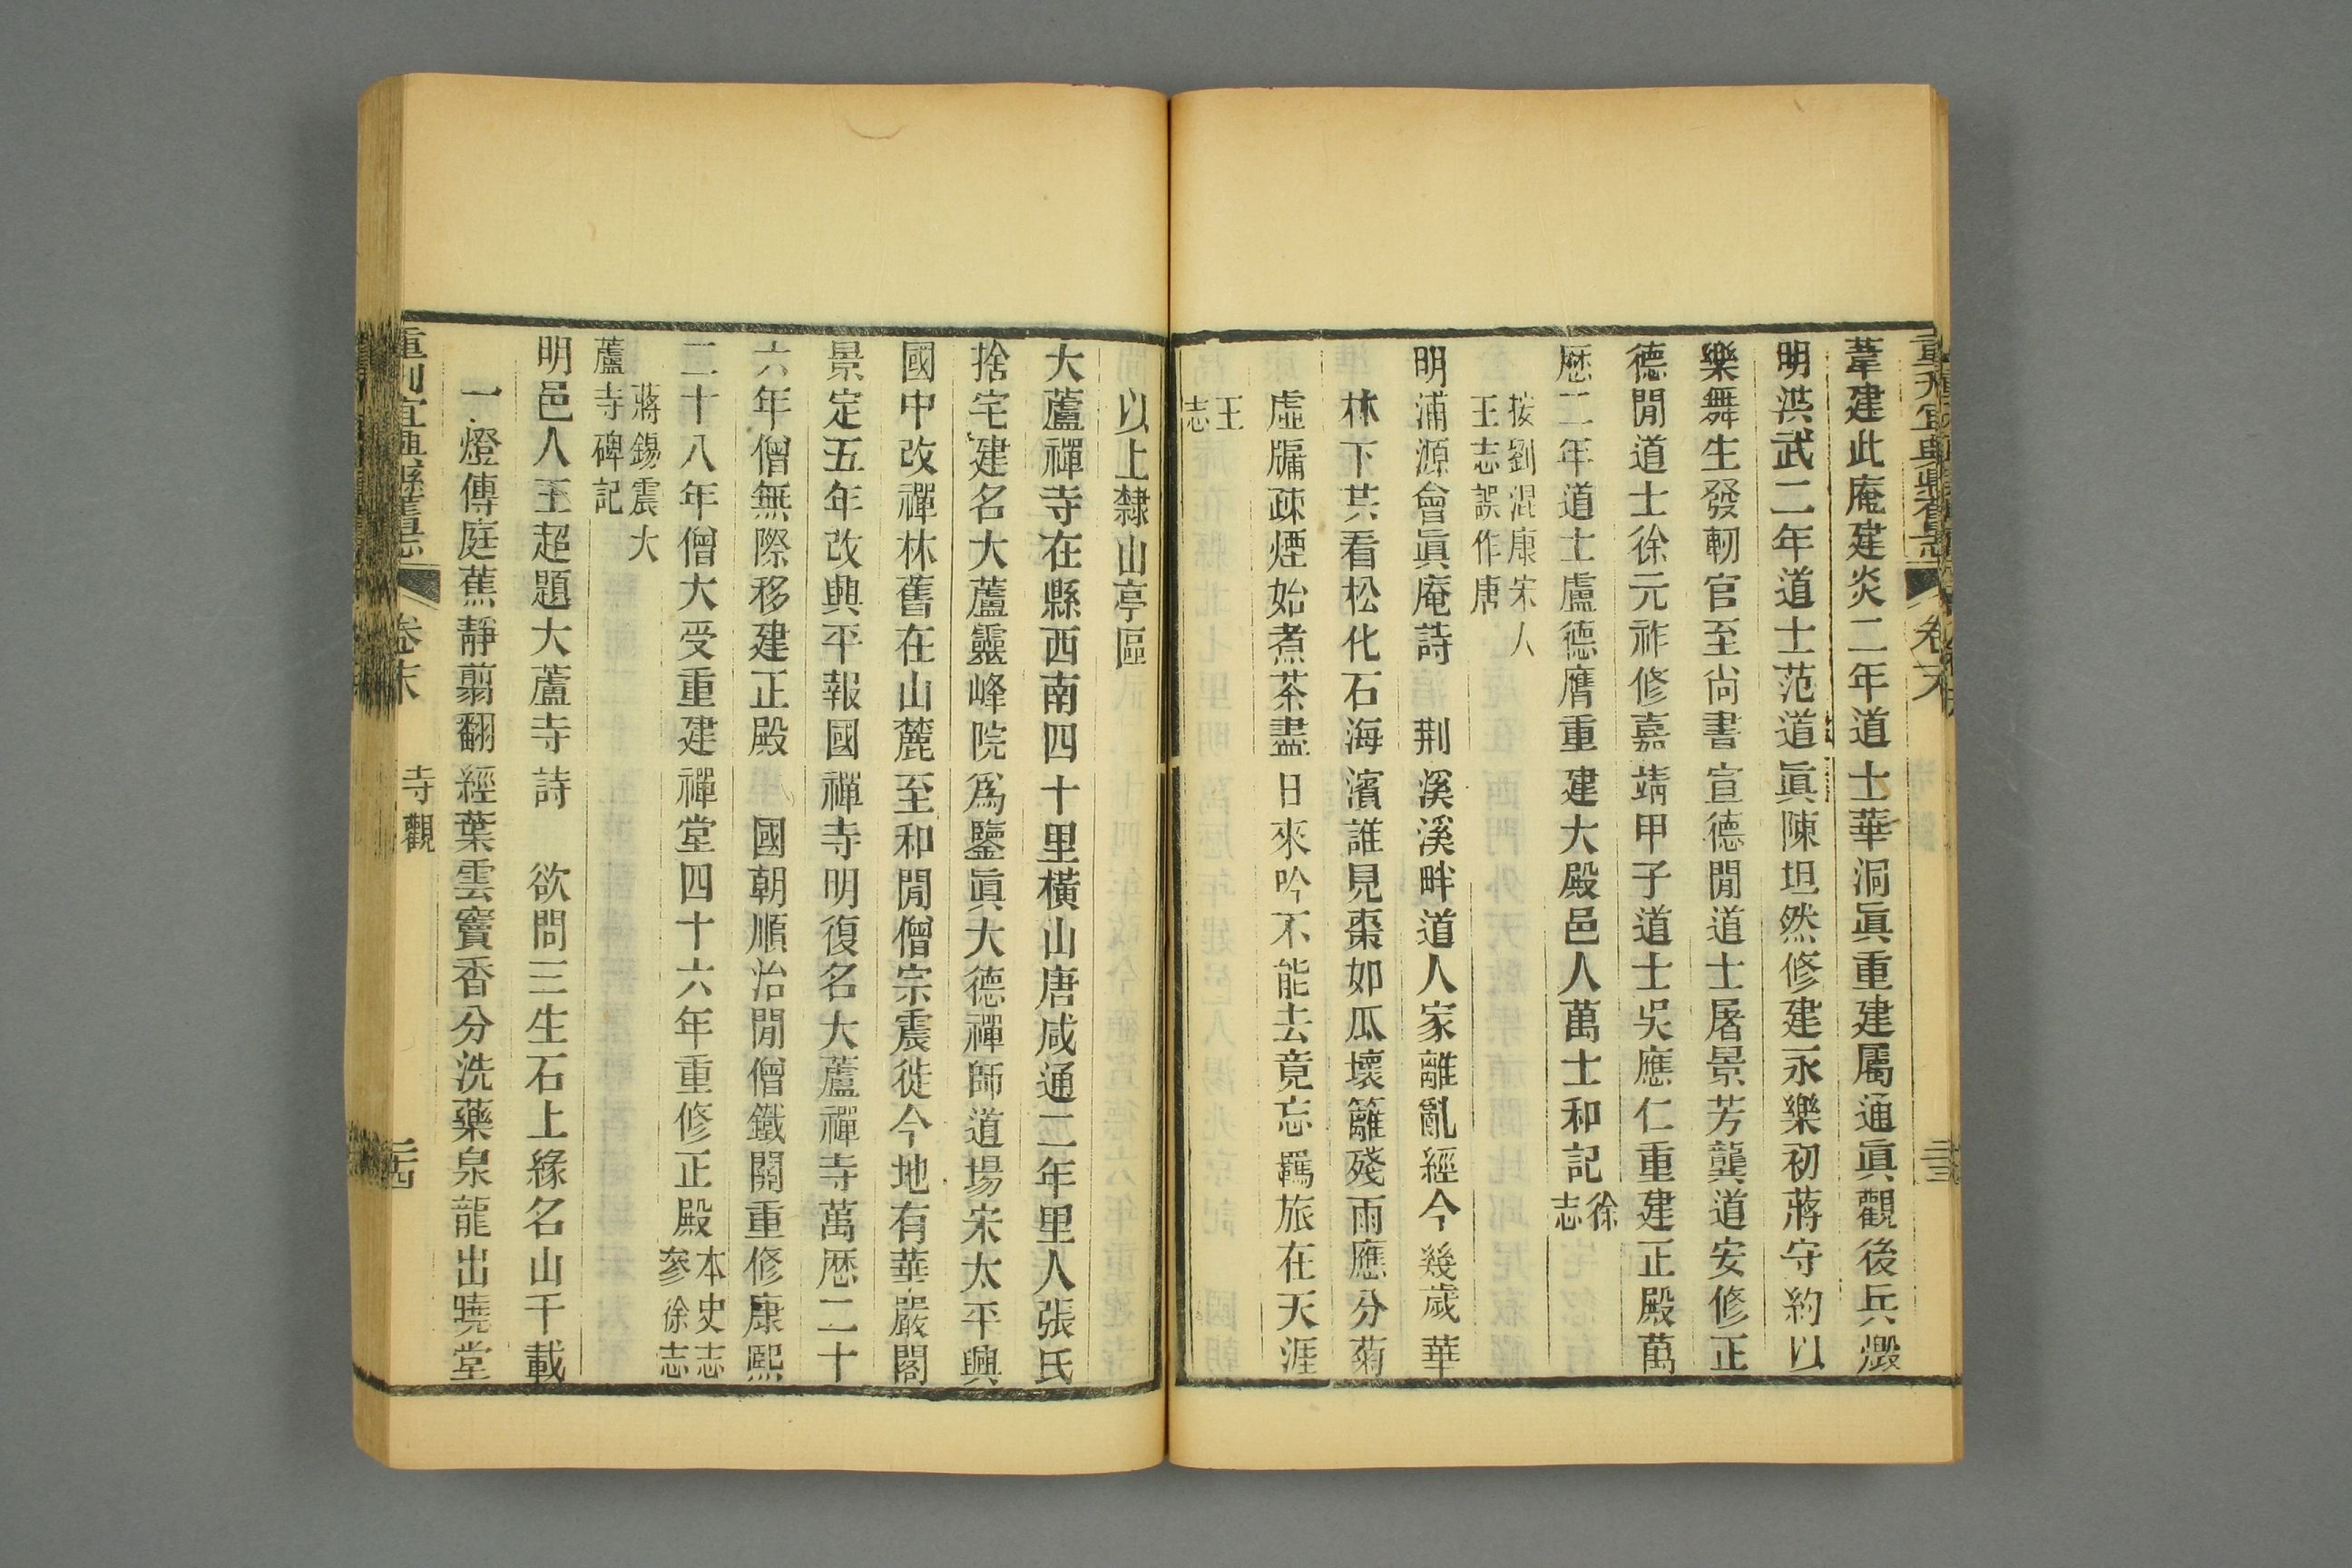 葦建此庵建炎二年道士華洞眞重建屬通眞觀後兵燬
明洪武二年道士范道眞陳坦然修建永樂初蔣守約以
樂舞生發軔官至尙書宣德閒道士屠景芳龔道安修正
德閒道士徐元祚修嘉靖甲子道士吳應仁重建正殿萬
歷二年道士盧德膺重建大殿邑人萬士和記徐志
按劉混康宋人
王志誤作唐
明浦源會眞庵詩 荆溪溪畔道人家離亂經今幾歲華
林下共看松化石海濱誰見棗如瓜壞籬殘雨應分菊
虛牖疎煙始煮茶盡日來吟不能去竟忘羈旅在天涯
王志
以上隸山亭區
大蘆禪寺在縣西南四十里橫山唐咸通二年里人張氏
捨宅建名大蘆靈峰院爲鑒眞大德禪師道場宋太平興
國中改禪林舊在山麓至和閒僧宗震徙今地有華嚴閣
景定五年改興平報國禪寺明復名大蘆禪寺萬歷二十
六年僧無際移建正殿 國朝順治閒僧鐵關重修康熙
二十八年僧大受重建禪堂四十六年重修正殿本史志
參徐志
蔣錫震大
蘆寺碑記
明邑人王超題大蘆寺詩 欲問三生石上緣名山千載
一燈傳庭蕉靜翦翻經葉雲竇香分洗藥泉龍出曉堂
重刊宜興縣舊志 卷末 寺觀 二十四